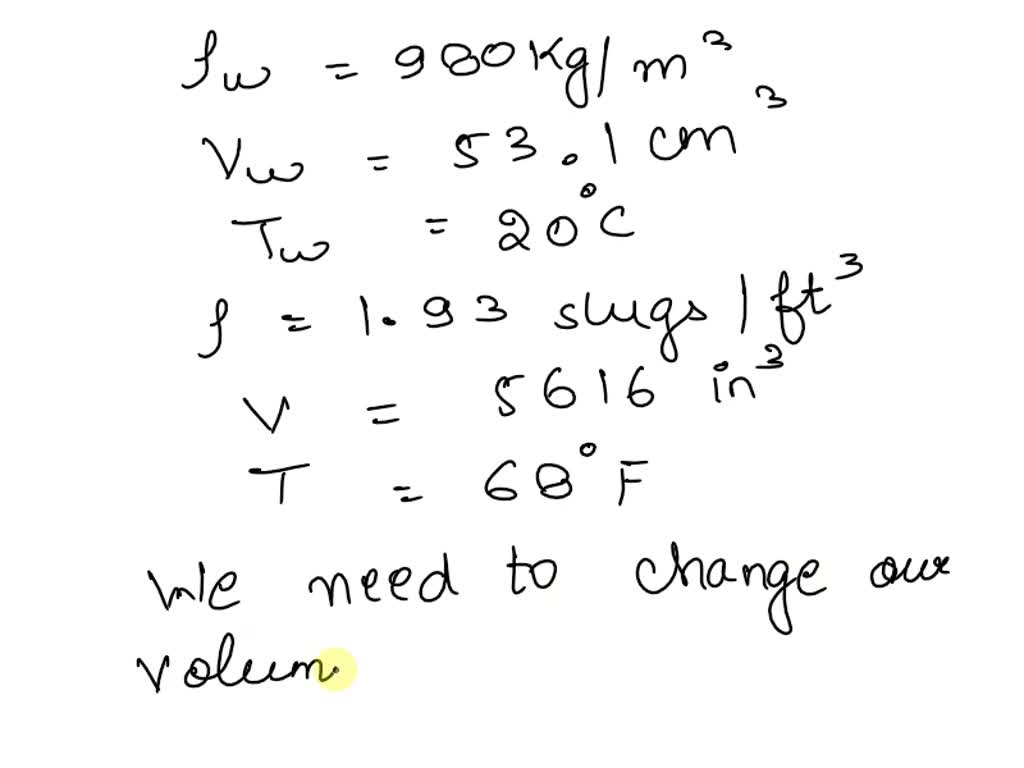 ρw = 980 Kg/m³
Vw = 53.1 cm³
Tw = 20°C
ρ = 1.93 slugs/ft³
V = 5616 in³
T = 68°F
We need to change our
volum